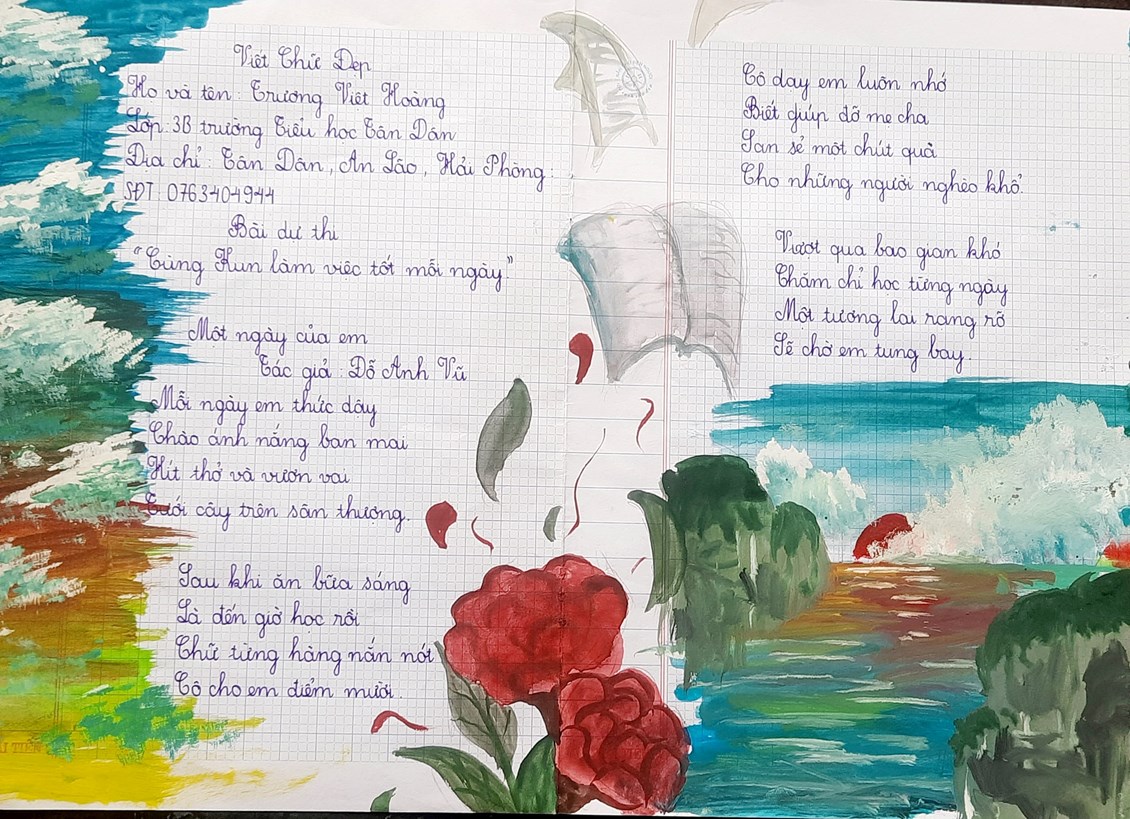 Viết Chữ Đẹp
Họ và tên: Trương Việt Hoàng
Lớp: 3B trường Tiểu học Tân Dân
Địa chỉ: Tân Dân, An Lão, Hải Phòng.
SĐT: 0763404944
Bài dự thi
“Cùng Kun làm việc tốt mỗi ngày.”
Một ngày của em
Tác giả: Đỗ Anh Vũ
Mỗi ngày em thức dậy
Chào ánh nắng ban mai
Hít thở và vươn vai
Tưới cây trên sân thượng.
Sau khi ăn bữa sáng
Là đến giờ học rồi
Chữ từng hàng nắn nót
Cô cho em điểm mười.
Cô dạy em luôn nhớ
Biết giúp đỡ mẹ cha
San sẻ một chút quà
Cho những người nghèo khổ.
Vượt qua bao gian khó
Chăm chỉ học từng ngày
Một tương lai rạng rỡ
Sẽ chờ em tung bay.